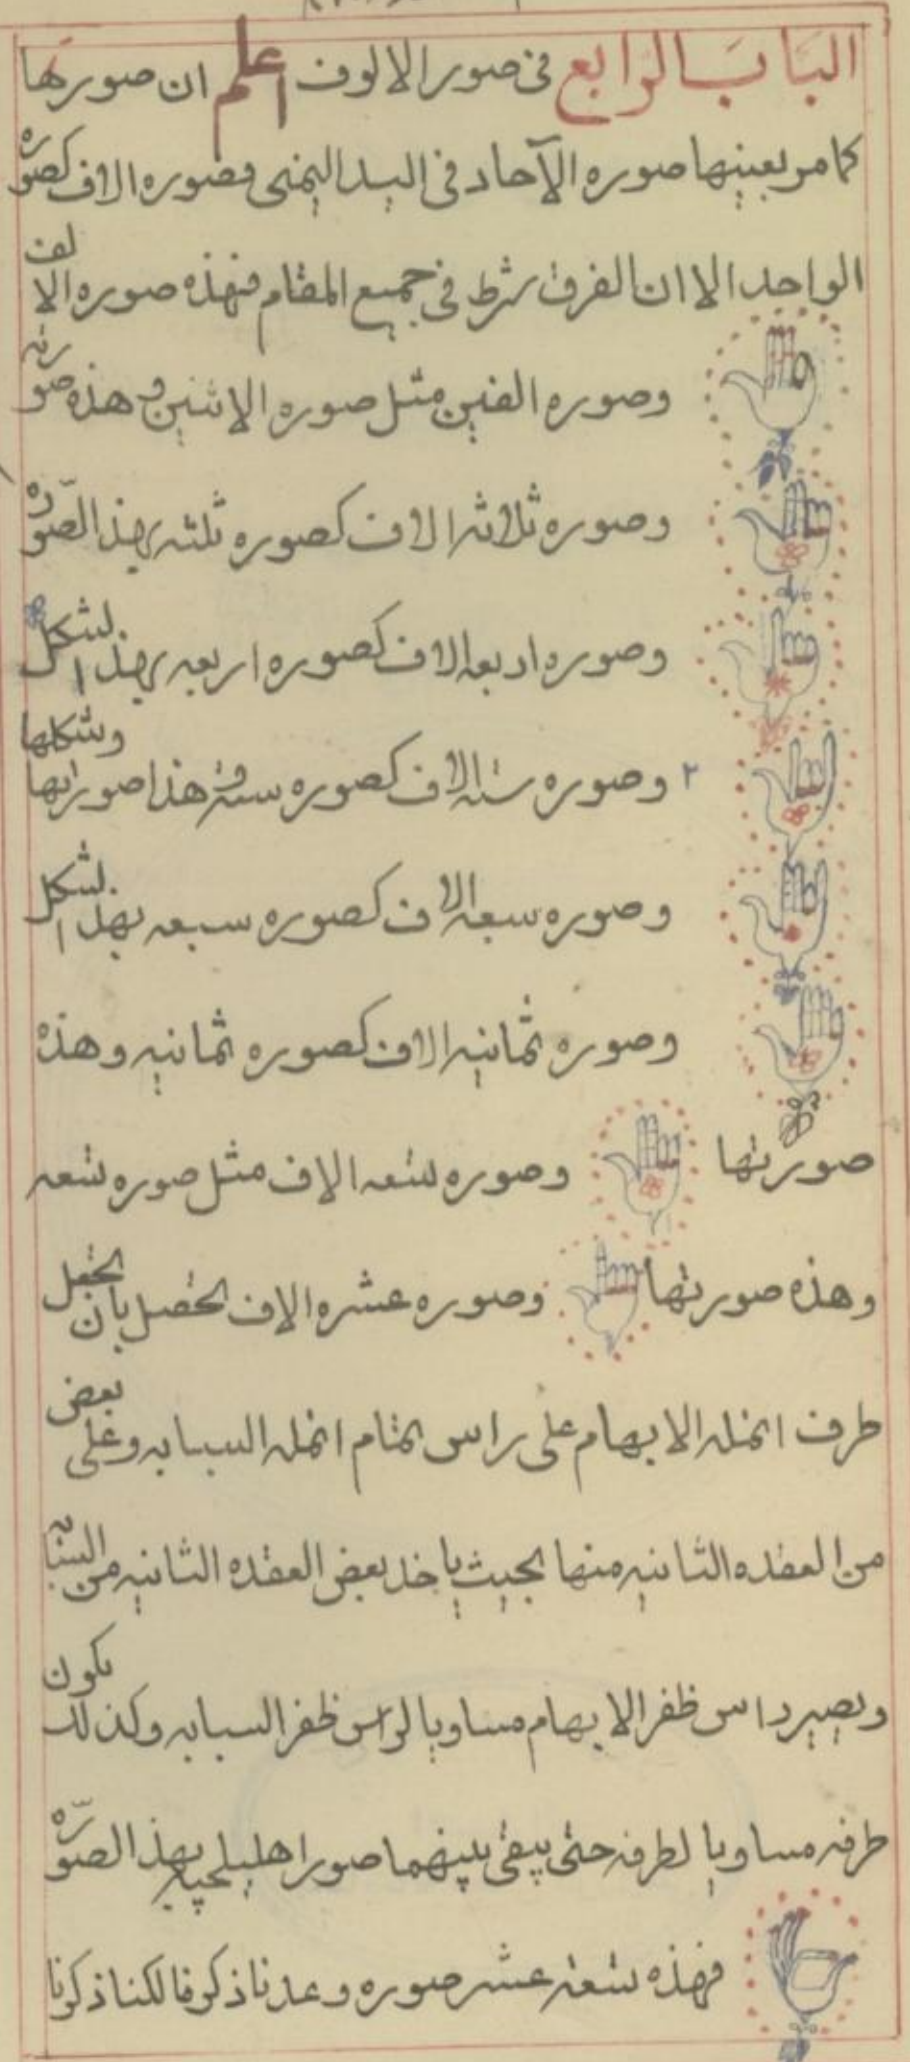 الباب الرابع في صور الالوف اعلم ان صورها
كما مر بعينها صوره الآحاد في اليد اليمنى فصوره الاف كصوره
الواحد الا ان الفرق شرط في جميع المقام فهذه صوره الالف
وصوره الفين مثل صوره الاثنين و هذه صورته
وصوره ثلاثه الاف كصوره ثلثه بهذ الصوره
وصوره اربعه الاف كصوره اربعه بهذ الشكل
٢ وصوره سته الاف كصوره سته و هذا صورتها وشكلها
وصوره سبعه الاف كصوره سبعه بهذ الشكل
وصوره ثمانيه الاف كصوره ثمانيه وهذه
صورتها وصوره تسعه الاف مثل صوره تسعه
وهذه صورتها وصوره عشره الاف تحصل بان تجعل
طرف انمله الابهام على راس تمام انمله السبابه وعلى بعض
من العقده الثانيه منها بحيث ياخذ بعض العقده الثانيه من
ويصير راس ظفر الابهام مساويا لراس ظفر السبابه وكذلك يكون
طرفه مساويا لطرفه حتى يبقى بينهما صور اهليلجيه بهذ الصوره
فهذه تسعه عشر صوره وعدنا ذكرها لكنا ذكرنا